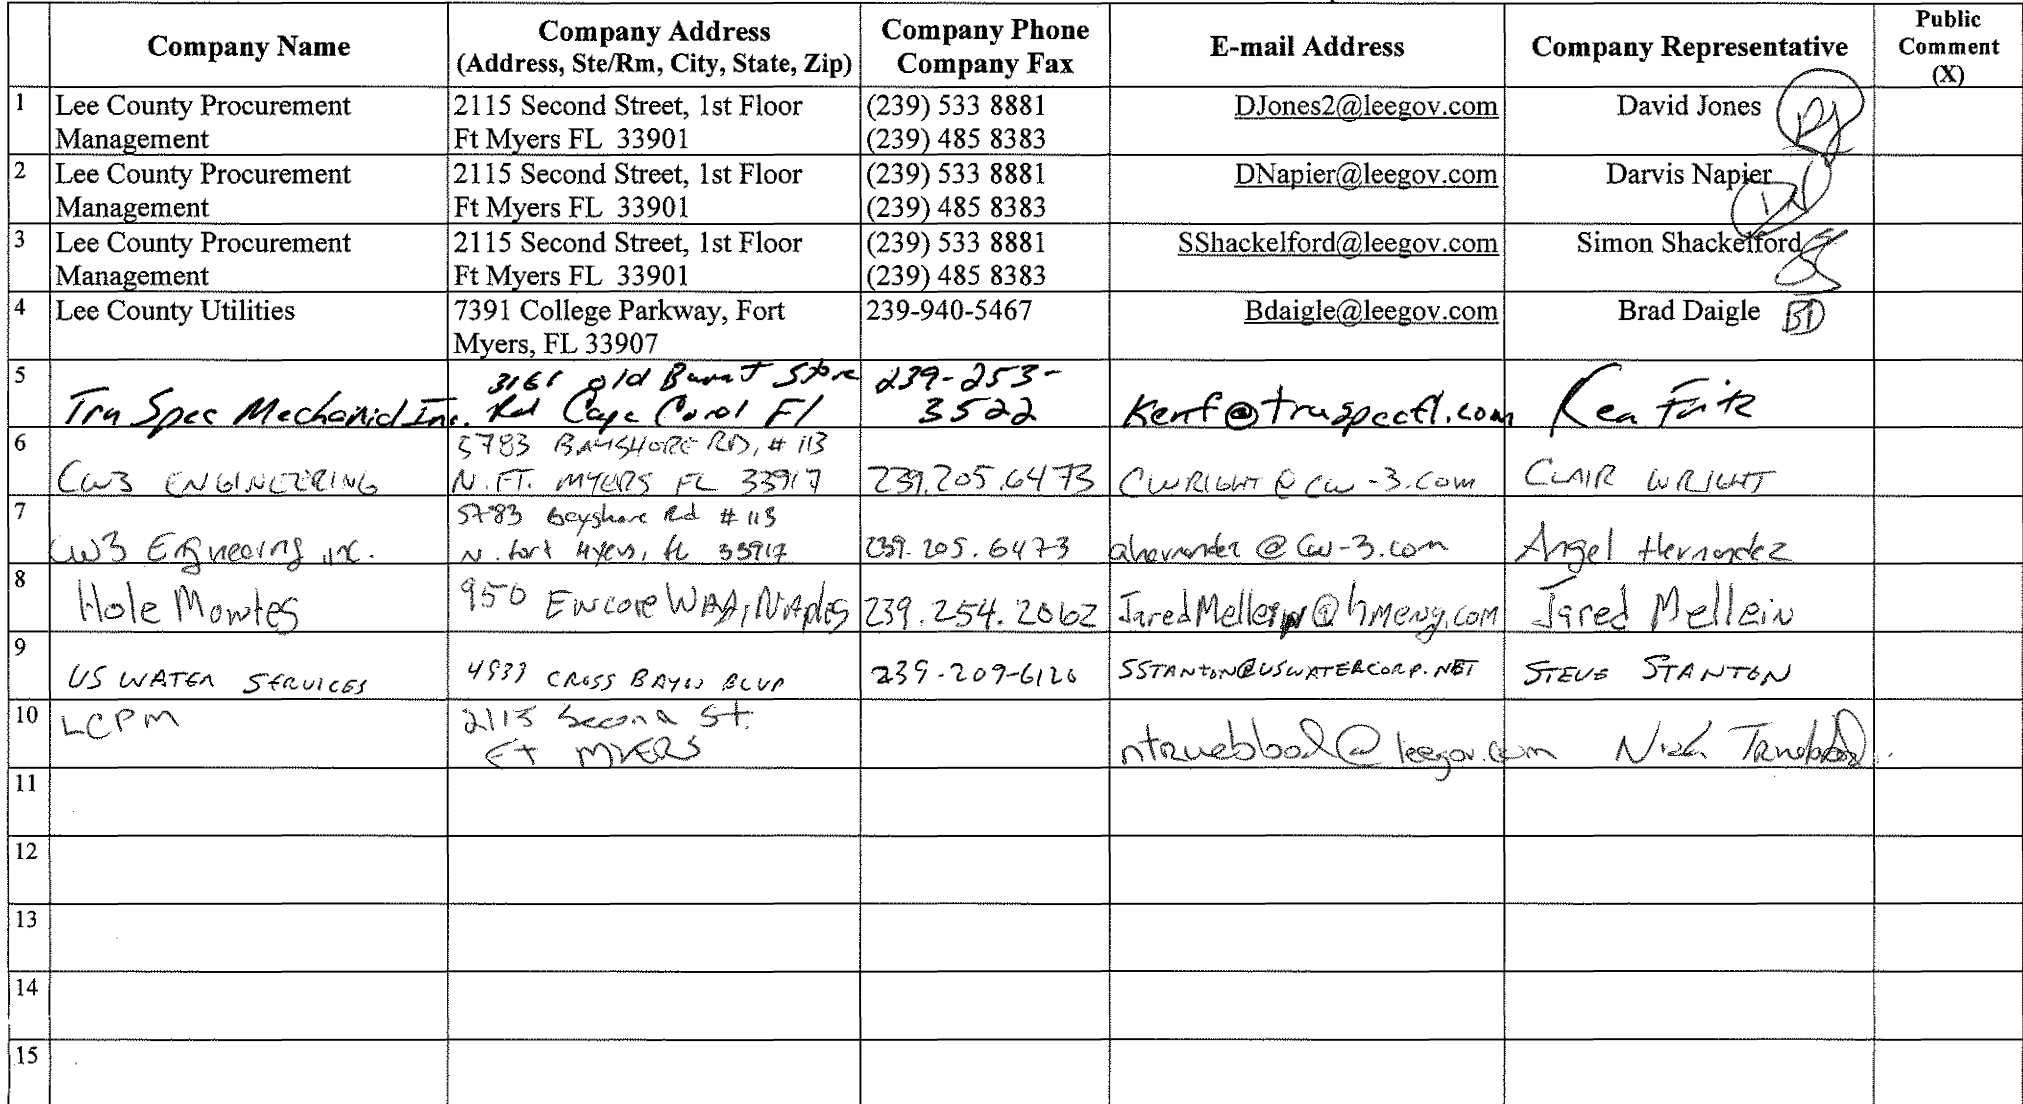 Company Name
Company Address
(Address, Ste/Rm, City, State, Zip)
Company Phone
Company Fax
E-mail Address
Company Representative
Public
Comment
(X)
1
Lee County Procurement
Management
2115 Second Street, 1st Floor
Ft Myers FL 33901
(239) 533 8881
(239) 485 8383
DJones2@leegov.com
David Jones
DJ
2
Lee County Procurement
Management
2115 Second Street, 1st Floor
Ft Myers FL 33901
(239) 533 8881
(239) 485 8383
DNapier@leegov.com
Darvis Napier
DN
3
Lee County Procurement
Management
2115 Second Street, 1st Floor
Ft Myers FL 33901
(239) 533 8881
(239) 485 8383
SShackelford@leegov.com
Simon Shackelford
4
Lee County Utilities
7391 College Parkway, Fort
Myers, FL 33907
239-940-5467
Bdaigle@leegov.com
Brad Daigle
BD
5
Tru Spec Mechanicl Inc.
3161 old Burnt Store
Rd Cape Coral Fl
239-253-
3522
Kenf@truspecfl.com
Ken Fritz
6
CW3 ENGINEERING
5783 BAYSHORE RD, # 113
N. FT. MYERS FL 33917
239.205.6473
CWRIGHT@CW-3.com
CLAIR WRIGHT
7
CW3 Engineering, inc.
5783 Bayshore Rd #113
N. fort Myers, fl 33917
239.205.6473
ahernandez@cw-3.com
Angel Hernandez
8
Hole Montes
950 Encore Way, Naples
239.254.2062
JaredMellein@hmeng.com
Jared Mellein
9
US WATER SERVICES
4939 CROSS BAYOU BLVD
239-209-6120
SSTANTON@USWATERCORP.NET
STEVE STANTON
10
LCPM
2115 Second St.
Ft MYERS
ntrueblood@leegov.com
Nick Trueblood
11
12
13
14
15